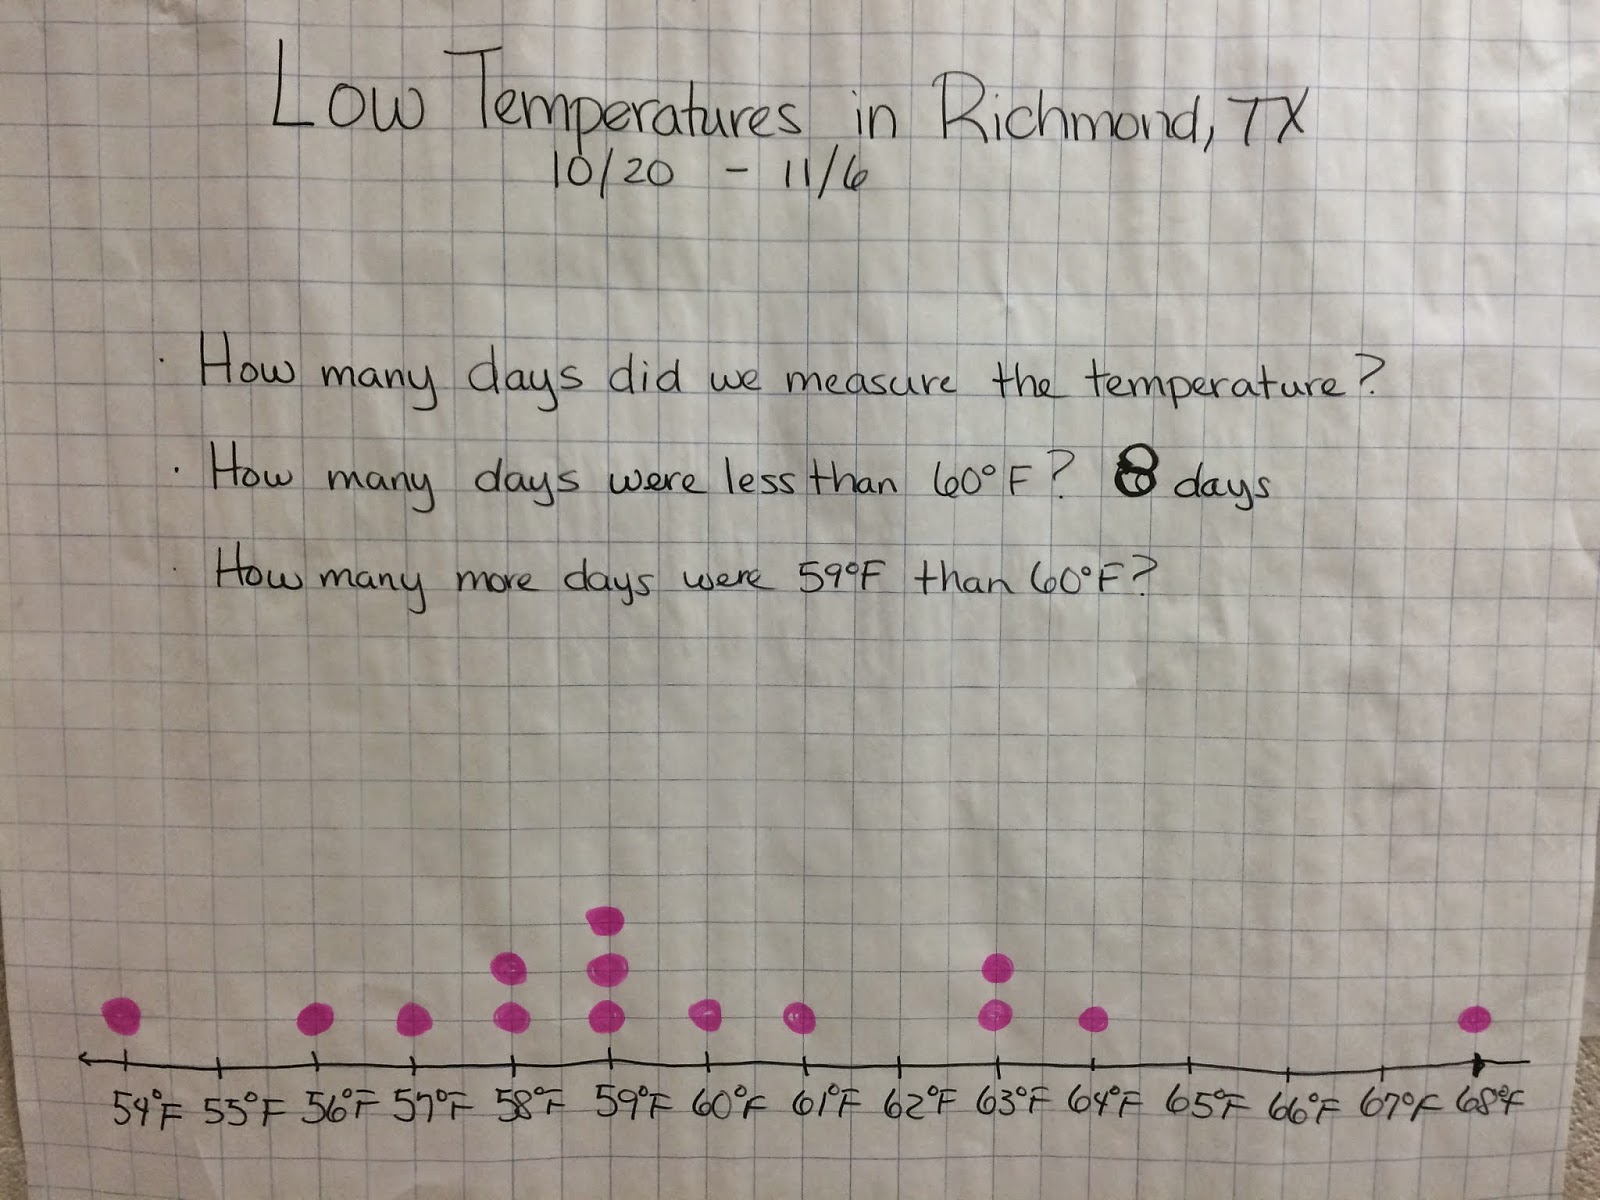 Low Temperatures in Richmond, TX
10/20 - 11/6
· How many days did we measure the temperature?
· How many days were less than 60°F? 8 days
· How many more days were 59°F than 60°F?
54°F 55°F 56°F 57°F 58°F 59°F 60°F 61°F 62°F 63°F 64°F 65°F 66°F 67°F 68°F